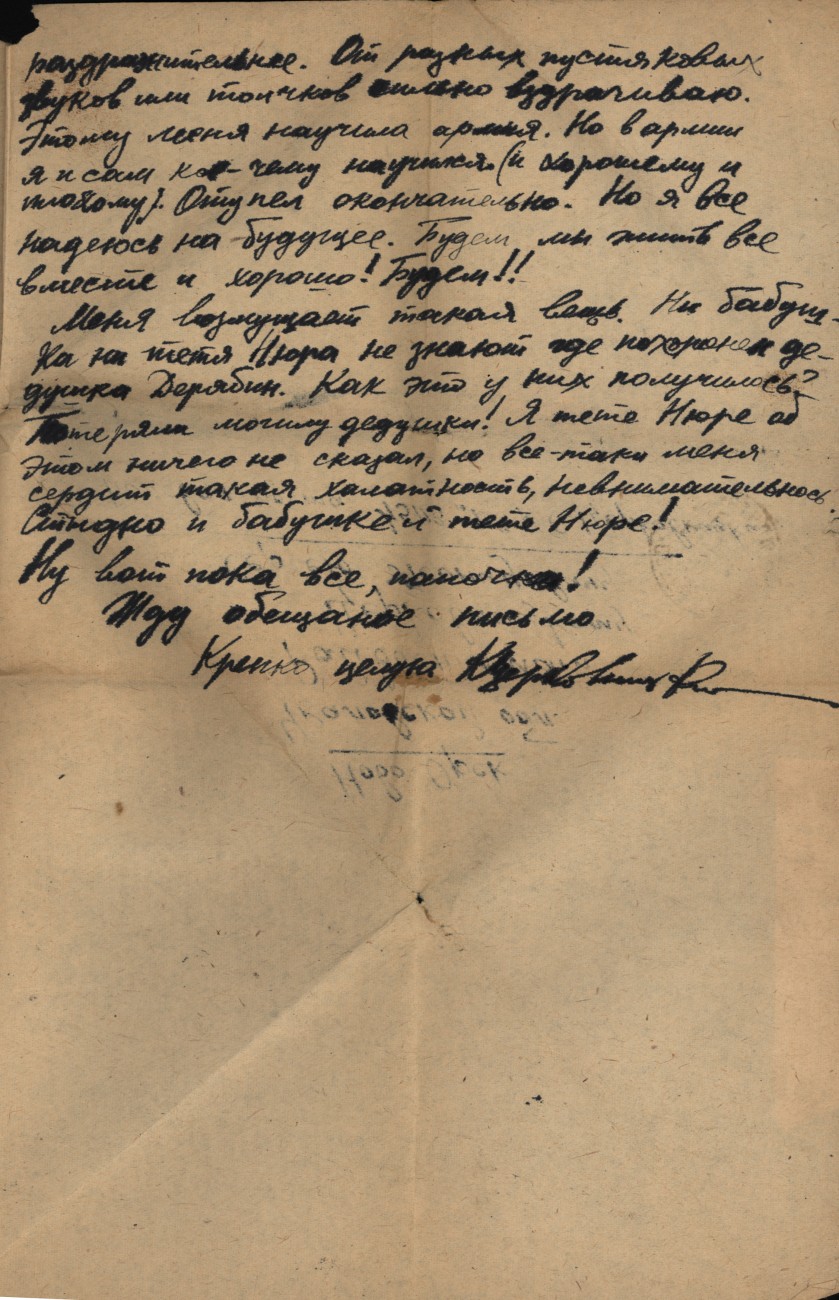 раздражительнее. От разных пустяковых
звуков или толчков сильно вздрачиваю.
Этому меня научила армия. Но в армии
я и сам кое-чему научился (и хорошему и
плохому). Отупел окончательно. Но я все
надеюсь на будущее. Будем мы жить все
вместе и хорошо! Будем!!
Меня возмущает такая вещь. Ни бабуш-
ка ни тетя Нюра не знают где похоронен де-
душка Дерябин. Как это у них получилось?
Потеряли могилу дедушки! Я тете Нюре об
этом ничего не сказал, но все-таки меня
сердит такая халатность, невнимательнось.
Стыдно и бабушке и тете Нюре!
Ну вот пока все, папочка!
Жду обещаное письмо
Крепко целую